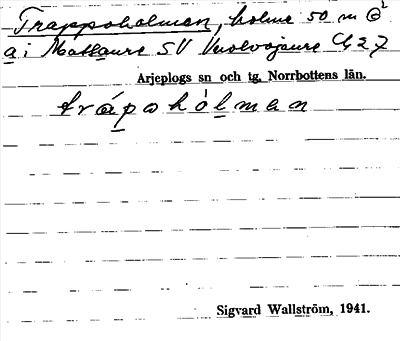 Trappoholmen, holme 50 m
a i Mattaure SV Vuolvojaure Ch 27
Arjeplogs sn och tg, Norrbottens län.
trápohólmen
Sigvard Wallström, 1941.